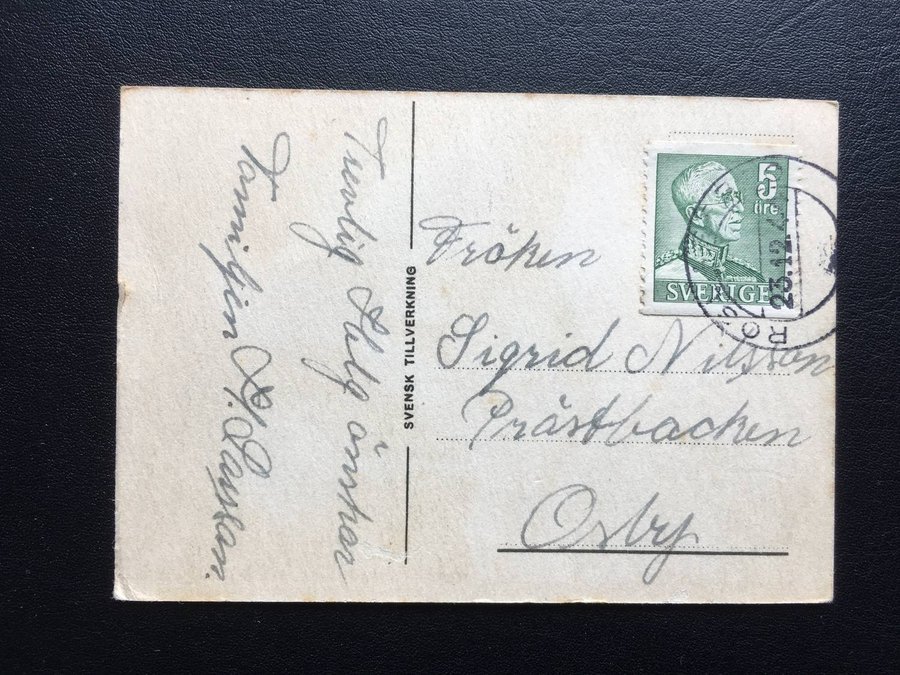 Trevlig Helg önskar
Familjen
SVENSK TILLVERKNING
5
öre
SVERIGE
23.12.4
Fröken
Sigrid Nilsson
Prästbacken
Osby